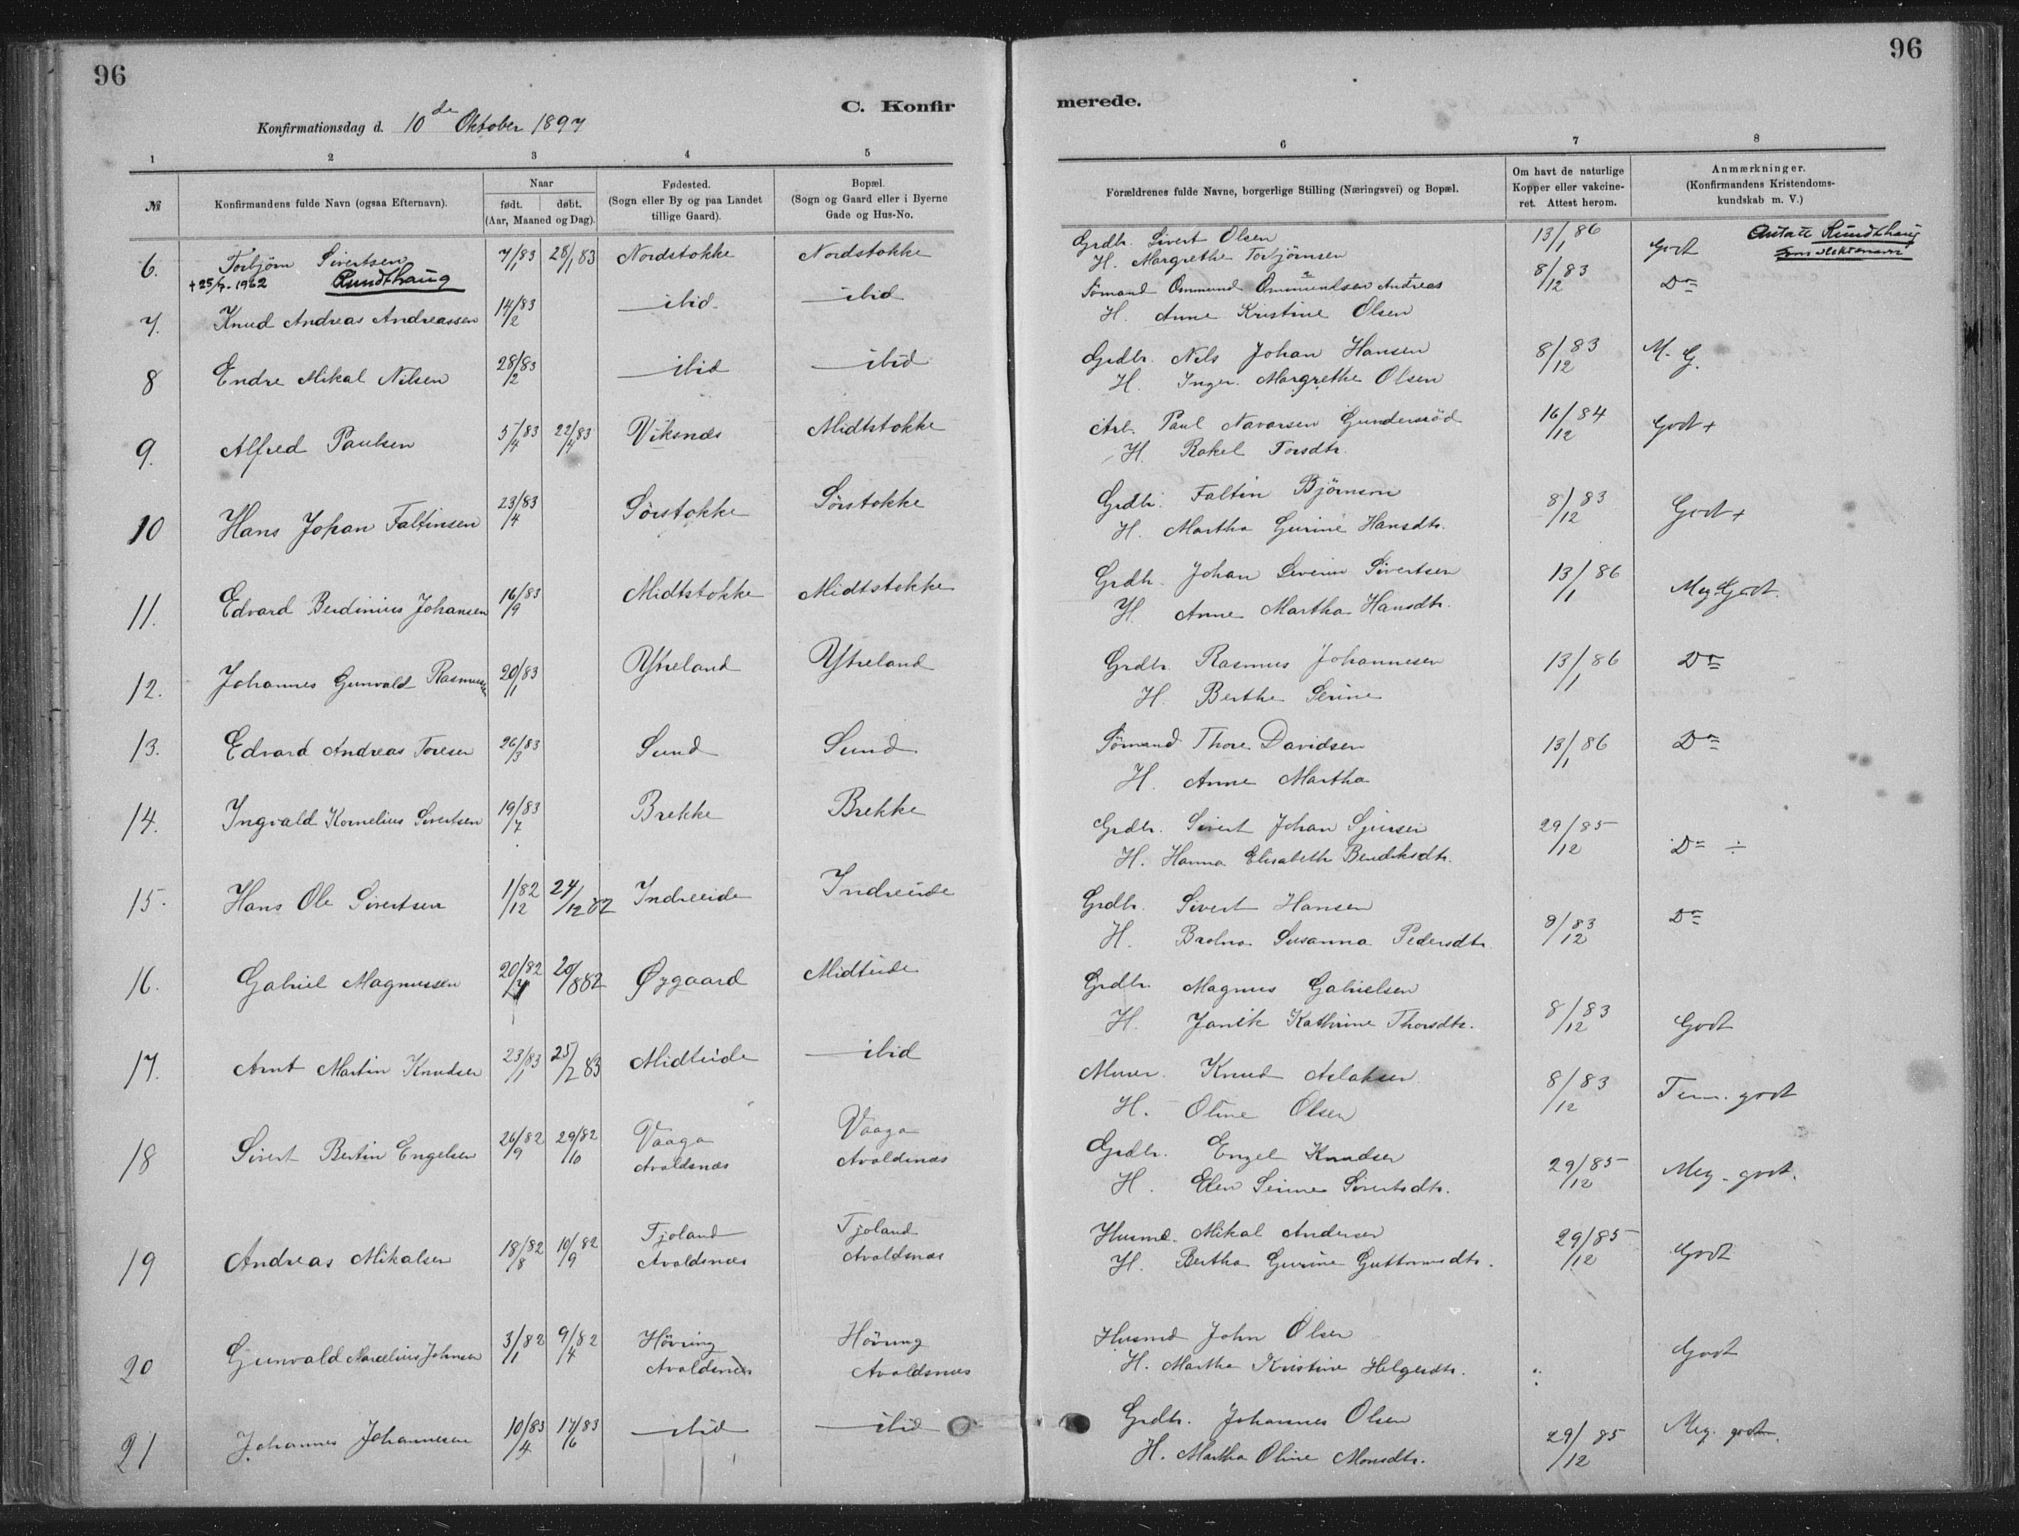 96
96
C. Konfir
merede.
Konfirmationsdag d. 10de Oktober 1897
1 2 3 4 5 6 7 8
№
Konfirmandens fulde Navn (ogsaa Efternavn).
Naar
født. døbt.
(Aar, Maaned og Dag).
Fødested.
(Sogn eller By og paa Landet
tillige Gaard).
Bopæl.
(Sogn og Gaard eller i Byerne
Gade og Hus-No.
Forældrenes fulde Navne, borgerlige Stilling (Næringsvei) og Bopæl.
Om havt de naturlige
Kopper eller vakcine-
ret. Attest herom.
Anmærkninger.
(Konfirmandens Kristendoms-
kundskab m. V.)
6. Torbjørn Sivertsen 7/1 83 28/1 83 Nordstokke Nordstokke Grdbr. Sivert Olsen 13/1 86 Godt Antatt Rundthaug
+25/7-1962 Rundthaug H. Margrethe Torbjørnsen som slektsnavn
7. Knud Andreas Andreassen 14/2 83 ibid ibid Sømand Ommund Ommundsen Andreas 8/12 83 Do
H. Anne Kristine Olsen
8 Endre Mikal Nilsen 28/2 83 ibid ibid Grdbr. Nils Johan Hansen 8/12 83 M. G.
H. Inger Margrethe Olsen
9. Alfred Paulsen 5/4 83 22/4 83 Viksnæs Midtstokke Arb. Paul Navarsen Gundersrød 16/12 84 Godt +
H. Rakel Torsdtr.
10 Hans Johan Faltinsen 23/4 83 Sørstokke Sørstokke Grdbr. Faltin Bjørnsen 8/12 83 Godt +
H. Martha Gurine Hansdtr.
11. Edvard Berdinius Johansen 16/9 83 Midtstokke Midtstokke Grdbr. Johan Severin Sivertsen 13/1 86 Meg. Godt.
H. Anne Martha Hansdtr.
12. Johannes Gunvald Rasmussen 20/1 83 Ytreland Ytreland Grdbr. Rasmus Johannesen 13/1 86 Do
H. Berthe Serine
13. Edvard Andreas Toresen 26/3 83 Sund Sund Sømand Thore Davidsen 13/1 86 Do
H. Anne Martha
14. Ingvald Kornelius Sivertsen 19/7 83 Brekke Brekke Grdbr. Sivert Johan Sjursen 29/12 85 Do ÷
H. Hanna Elisabeth Bendiksdtr.
15. Hans Ole Sivertsen 1/12 82 24/12 82 Indreeide Indreeide Grdbr. Sivert Hansen 9/12 83 Do
H. Susanna Pedersdtr.
16. Gabriel Magnussen 20/7 82 20/8 82 Øygaard Midteide Grdbr. Magnus Gabrielsen 8/12 83 Godt
H. Janik Kathrine Thorsdtr.
17. Arnt Martin Knudsen 23/1 83 25/2 83 Midteide ibid Murer. Knud Aslaksen 8/12 83 Tem. godt
H. Oline Olsen
18 Sivert Bertin Engelsen 26/9 82 29/10 82 Vaaga Vaaga Grdbr. Engel Knudsen 29/12 85 Meg. godt.
Avaldsnæs Avaldsnæs H. Elen Serine Sivertsdtr.
19 Andreas Mikalsen 18/8 82 10/9 82 Tjoland Tjoland Husmd. Mikal Andersen 29/12 85 Godt
Avaldsnæs Avaldsnæs H. Bertha Gurine Guttormsdtr.
20 Gunvald Marcelius Johnsen 3/1 82 9/4 82 Høvring Høvring Husmd John Olsen Godt
Avaldsnæs Avaldsnæs H. Martha Kristine Helgesdtr.
21 Johannes Johannesen 10/4 83 17/6 83 ibid ibid Grdbr. Johannes Olsen 29/12 85 Meg. godt.
H. Martha Oline Monsdtr.